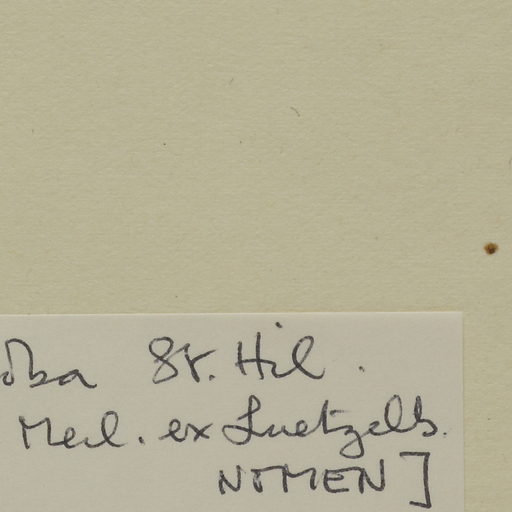 oba St. Hil.
Merl. ex Luetzelb.
NOMEN]